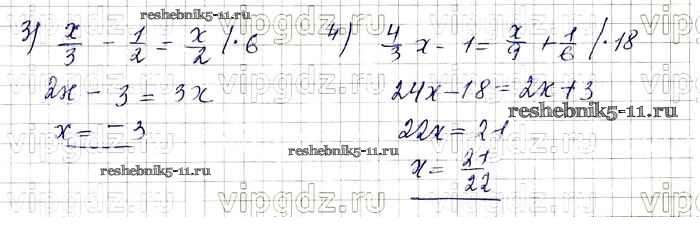 3) x/3 - 1/2 = x/2 / · 6
2x - 3 = 3x
x = - 3
4) 4/3 x - 1 = x/9 + 1/6 / · 18
24x - 18 = 2x + 3
22x = 21
x = 21/22
reshebnik5-11.ru
reshebnik5-11.ru
reshebnik5-11.ru
reshebnik5-11.ru
vipgdz.ru
vipgdz.ru
vipgdz.ru
vipgdz.ru
vipgdz.ru
vipgdz.ru
vipgdz.ru
vipgdz.ru
vipgdz.ru